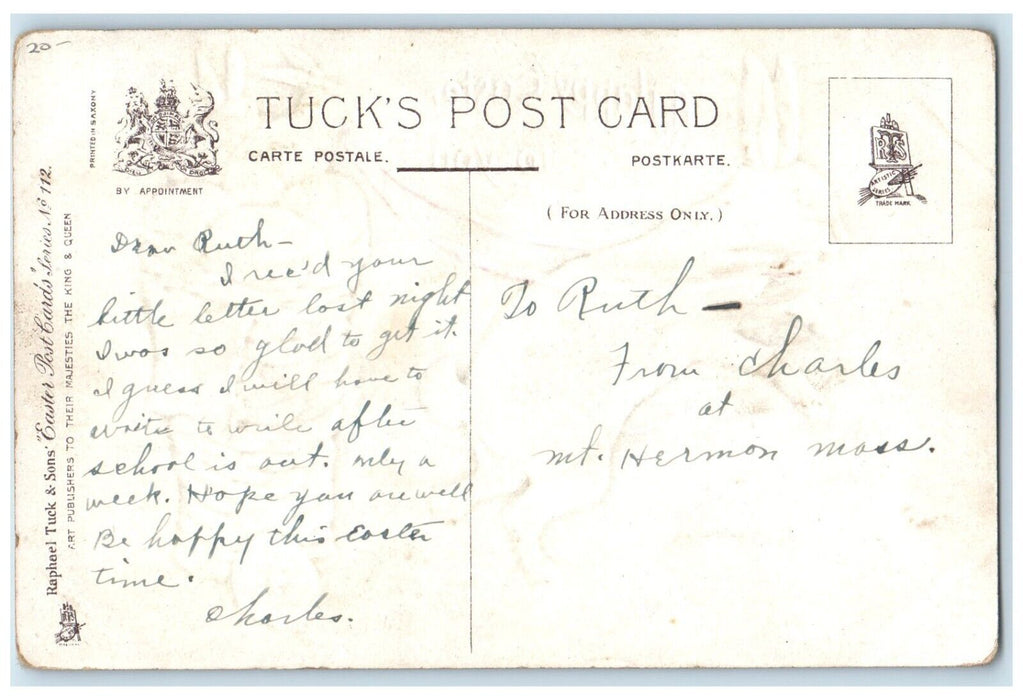 20-
PRINTED IN SAXONY
BY APPOINTMENT
TUCK'S POST CARD
CARTE POSTALE.
POSTKARTE.
(FOR ADDRESS ONLY.)
RTS
ARTISTIC SERIES
TRADE MARK
Raphael Tuck & Sons' "Easter Post Cards" Series. No 112.
ART PUBLISHERS TO THEIR MAJESTIES THE KING & QUEEN
Dear Ruth-
I rec'd your
little letter last night
I was so glad to get it.
I guess I will have to
write to after
school is out. only a
week. Hope you are well
Be happy this easter
time.
Charles.
To Ruth—
From Charles
at
Mt. Hermon Mass.